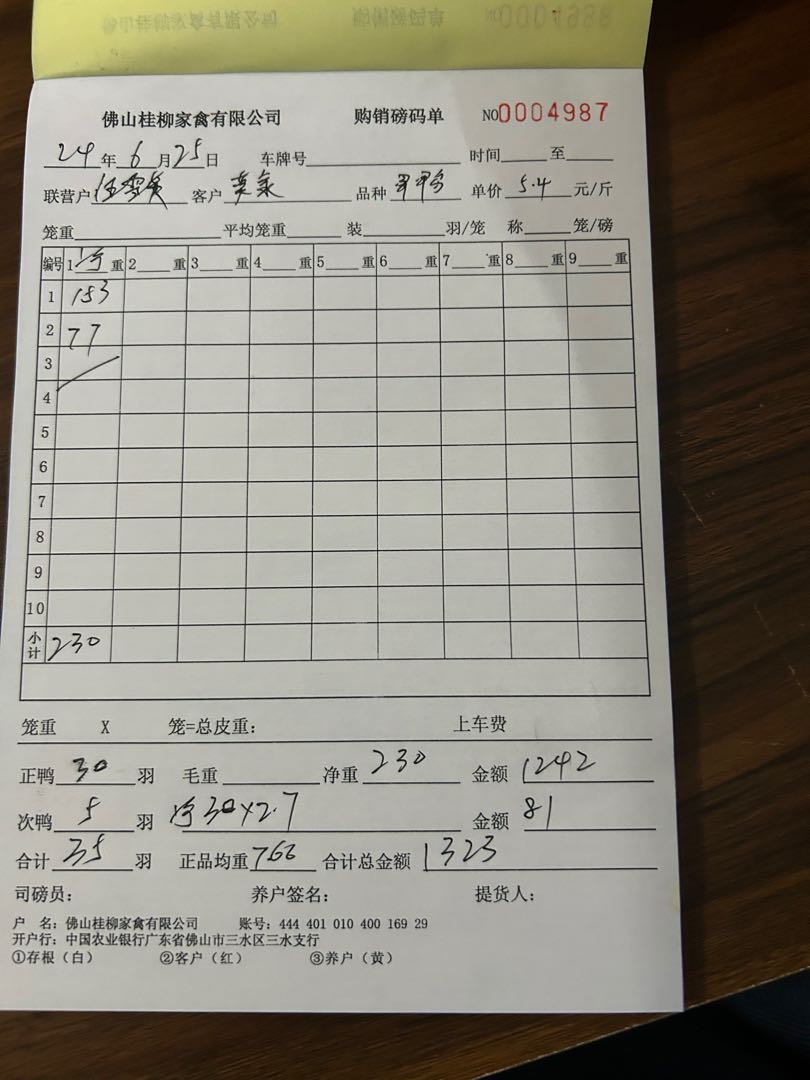 佛山桂柳家禽有限公司 购销磅码单 NO0004987
24年6月25日 车牌号 时间 至
联营户 客户 品种 单价5.4元/斤
笼重 平均笼重 装 羽/笼 称 笼/磅
编号 1 净 重 2 重 3 重 4 重 5 重 6 重 7 重 8 重 9 重
1 153
2 77
3
4
5
6
7
8
9
10
小计 230
笼重 X 笼=总皮重: 上车费
正鸭30羽 毛重 净重230 金额1242
次鸭5羽 净30×2.7 金额81
合计35羽 正品均重766 合计总金额1323
司磅员: 养户签名: 提货人:
户 名: 佛山桂柳家禽有限公司 账号: 444 401 010 400 169 29
开户行: 中国农业银行广东省佛山市三水区三水支行
①存根(白) ②客户(红) ③养户(黄)